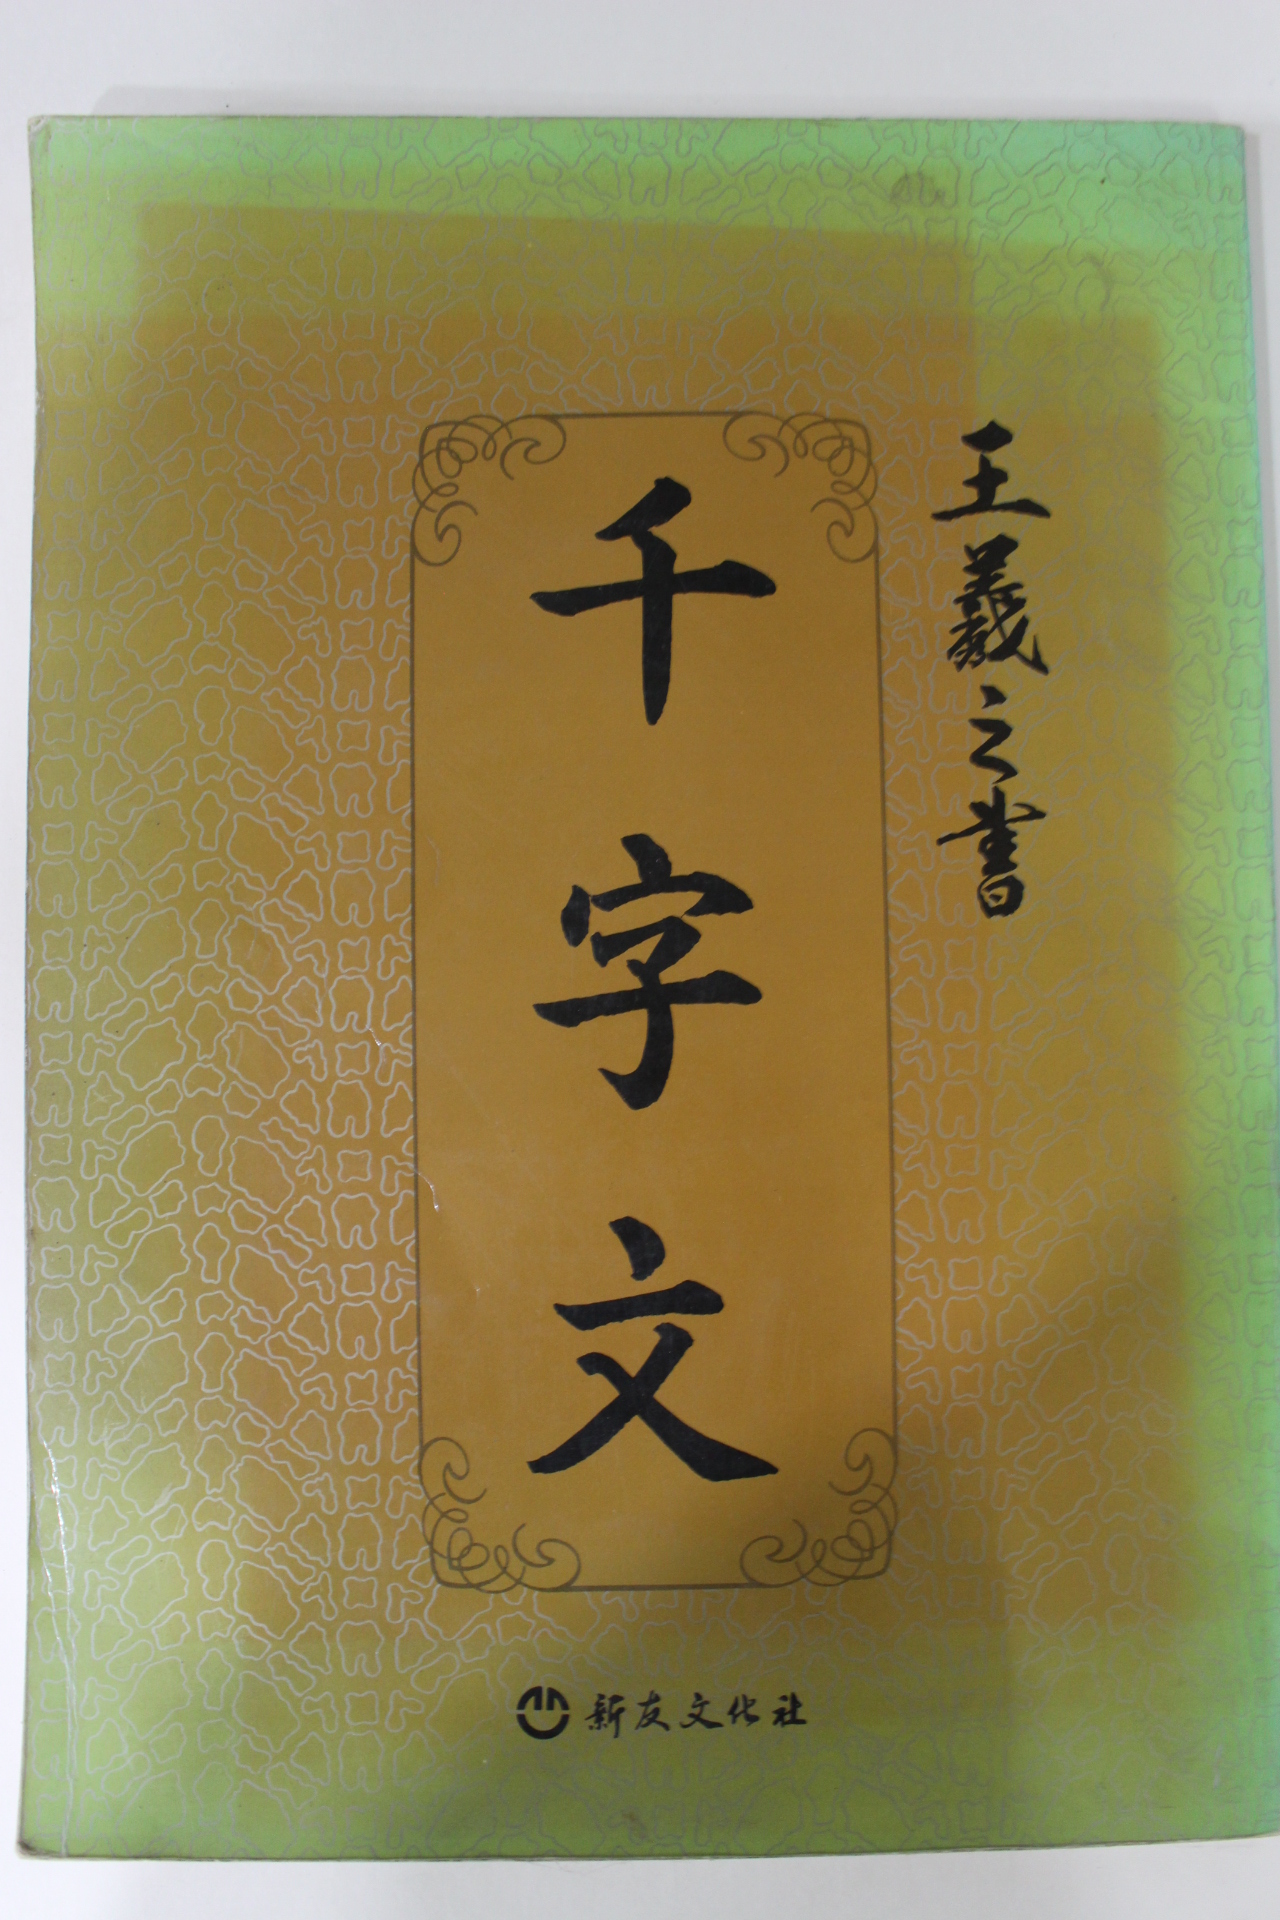 王羲之書
千字文
新友文化社